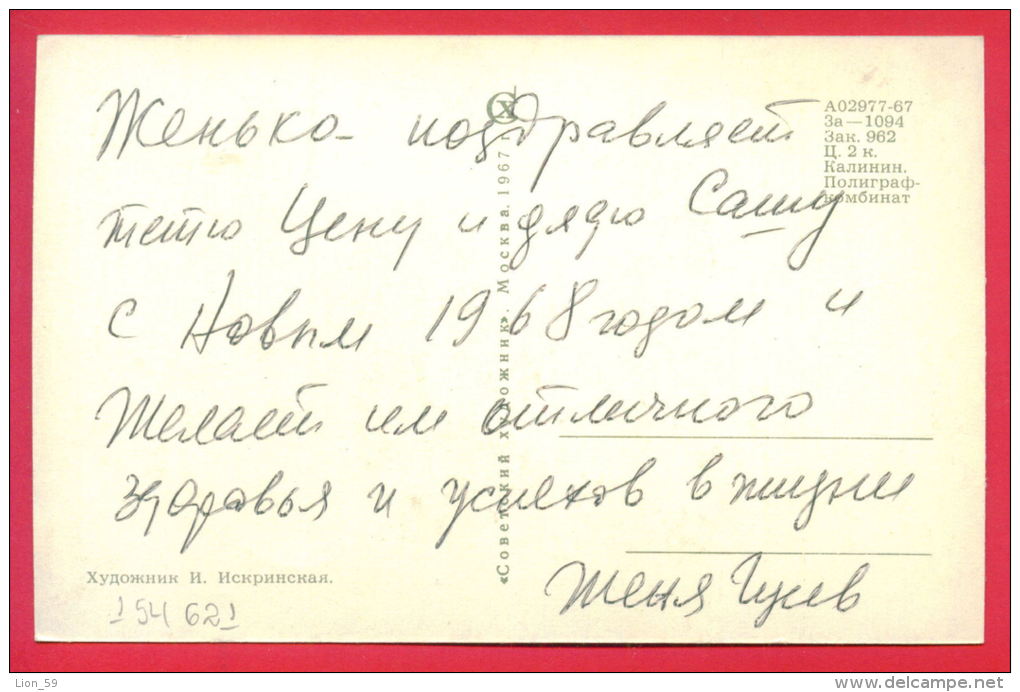 Женька поздравляет
тетю Цену и дядю Сашу
с Новым 1968 годом и
желает им отличного
здоровья и успехов в жизни
Женя
А02977-67
За—1094
Зак. 962
Ц. 2 к.
Калинин.
Полиграф-
комбинат
«Советский художник». Москва. 1967 г.
Художник И. Искринская.
154 621
Lion_59
www.delcampe.net